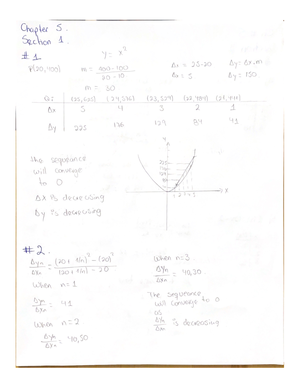 Chapter 5.
Section 1.
#1
y = x²
P(20,400)
m = 900-100 / 20-10
Δx = 25-20
Δx = 5
Δy = Δx.m
Δy = 150
m = 30
(24,576) (23,529) (22,484) (21,441)
Δx 5 4 3 2 1
Δy 225 176 129 84 41
The sequence
will converge
to 0
Δx is decreasing
Δy is decreasing
#2.
Δyn/Δxn = (20 + 1/n)² - (20)² / (20 + 1/n) - 20
When n=1
Δyn/Δxn = 41
When n=2
Δyn/Δxn = 40,50
When n=3
Δyn/Δxn = 40,30
The sequence
will converge to 0
Δyn/Δxn is decreasing